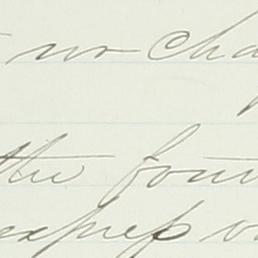 no cha
the foun
express o